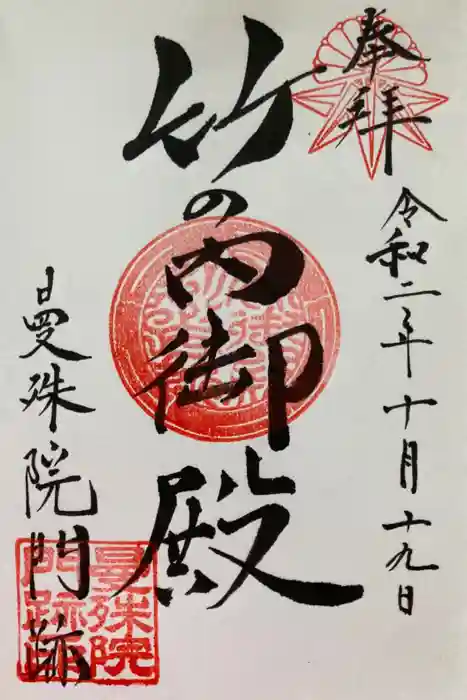 奉拝
令和二年十月十九日
竹の内御殿
曼殊院門跡
曼殊院
門跡